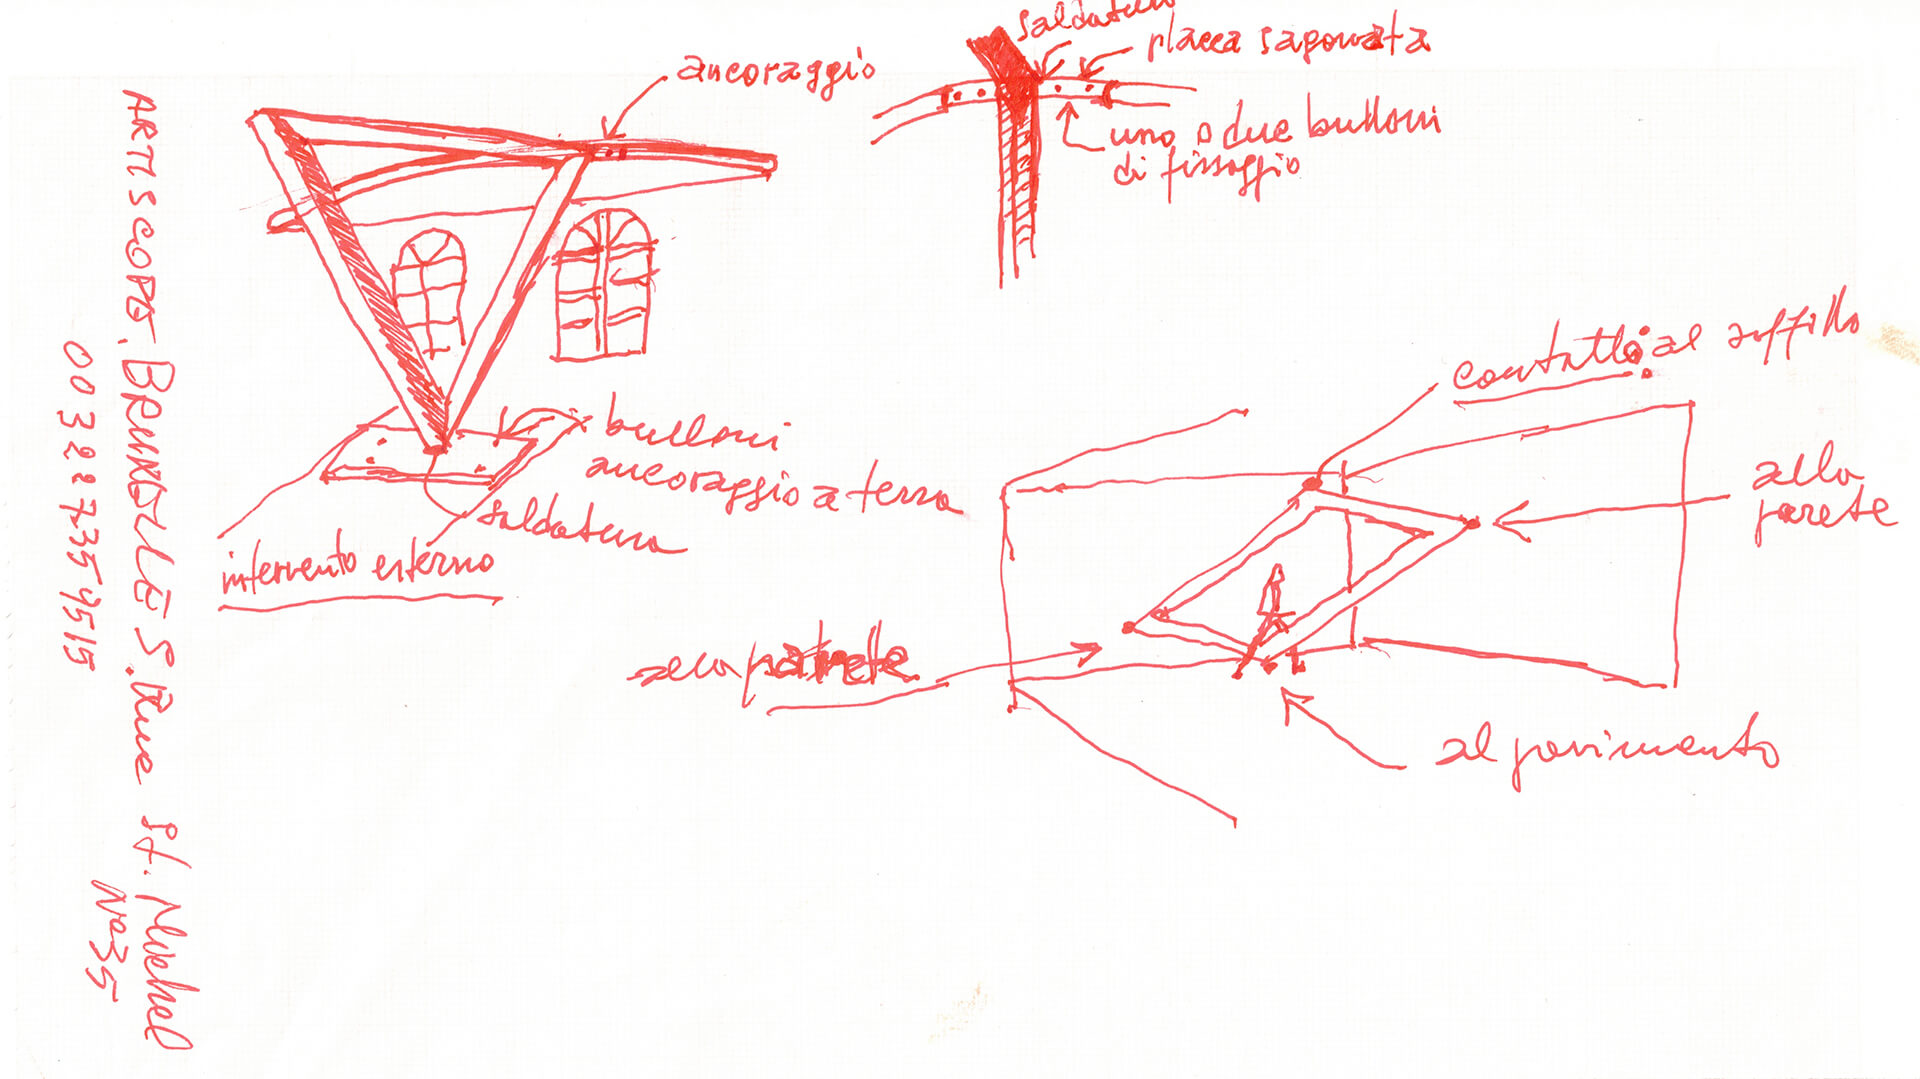 saldatura
placca sagomata
ancoraggio
uno o due bulloni
di fissaggio
contatto: al soffitto
bulloni
ancoraggio a terra
saldatura
intervento esterno
alla
parete
alla parete
al pavimento
ARTISCOPE, BRUXELLES. Rue St. Michel
N° 35
003227355 4515